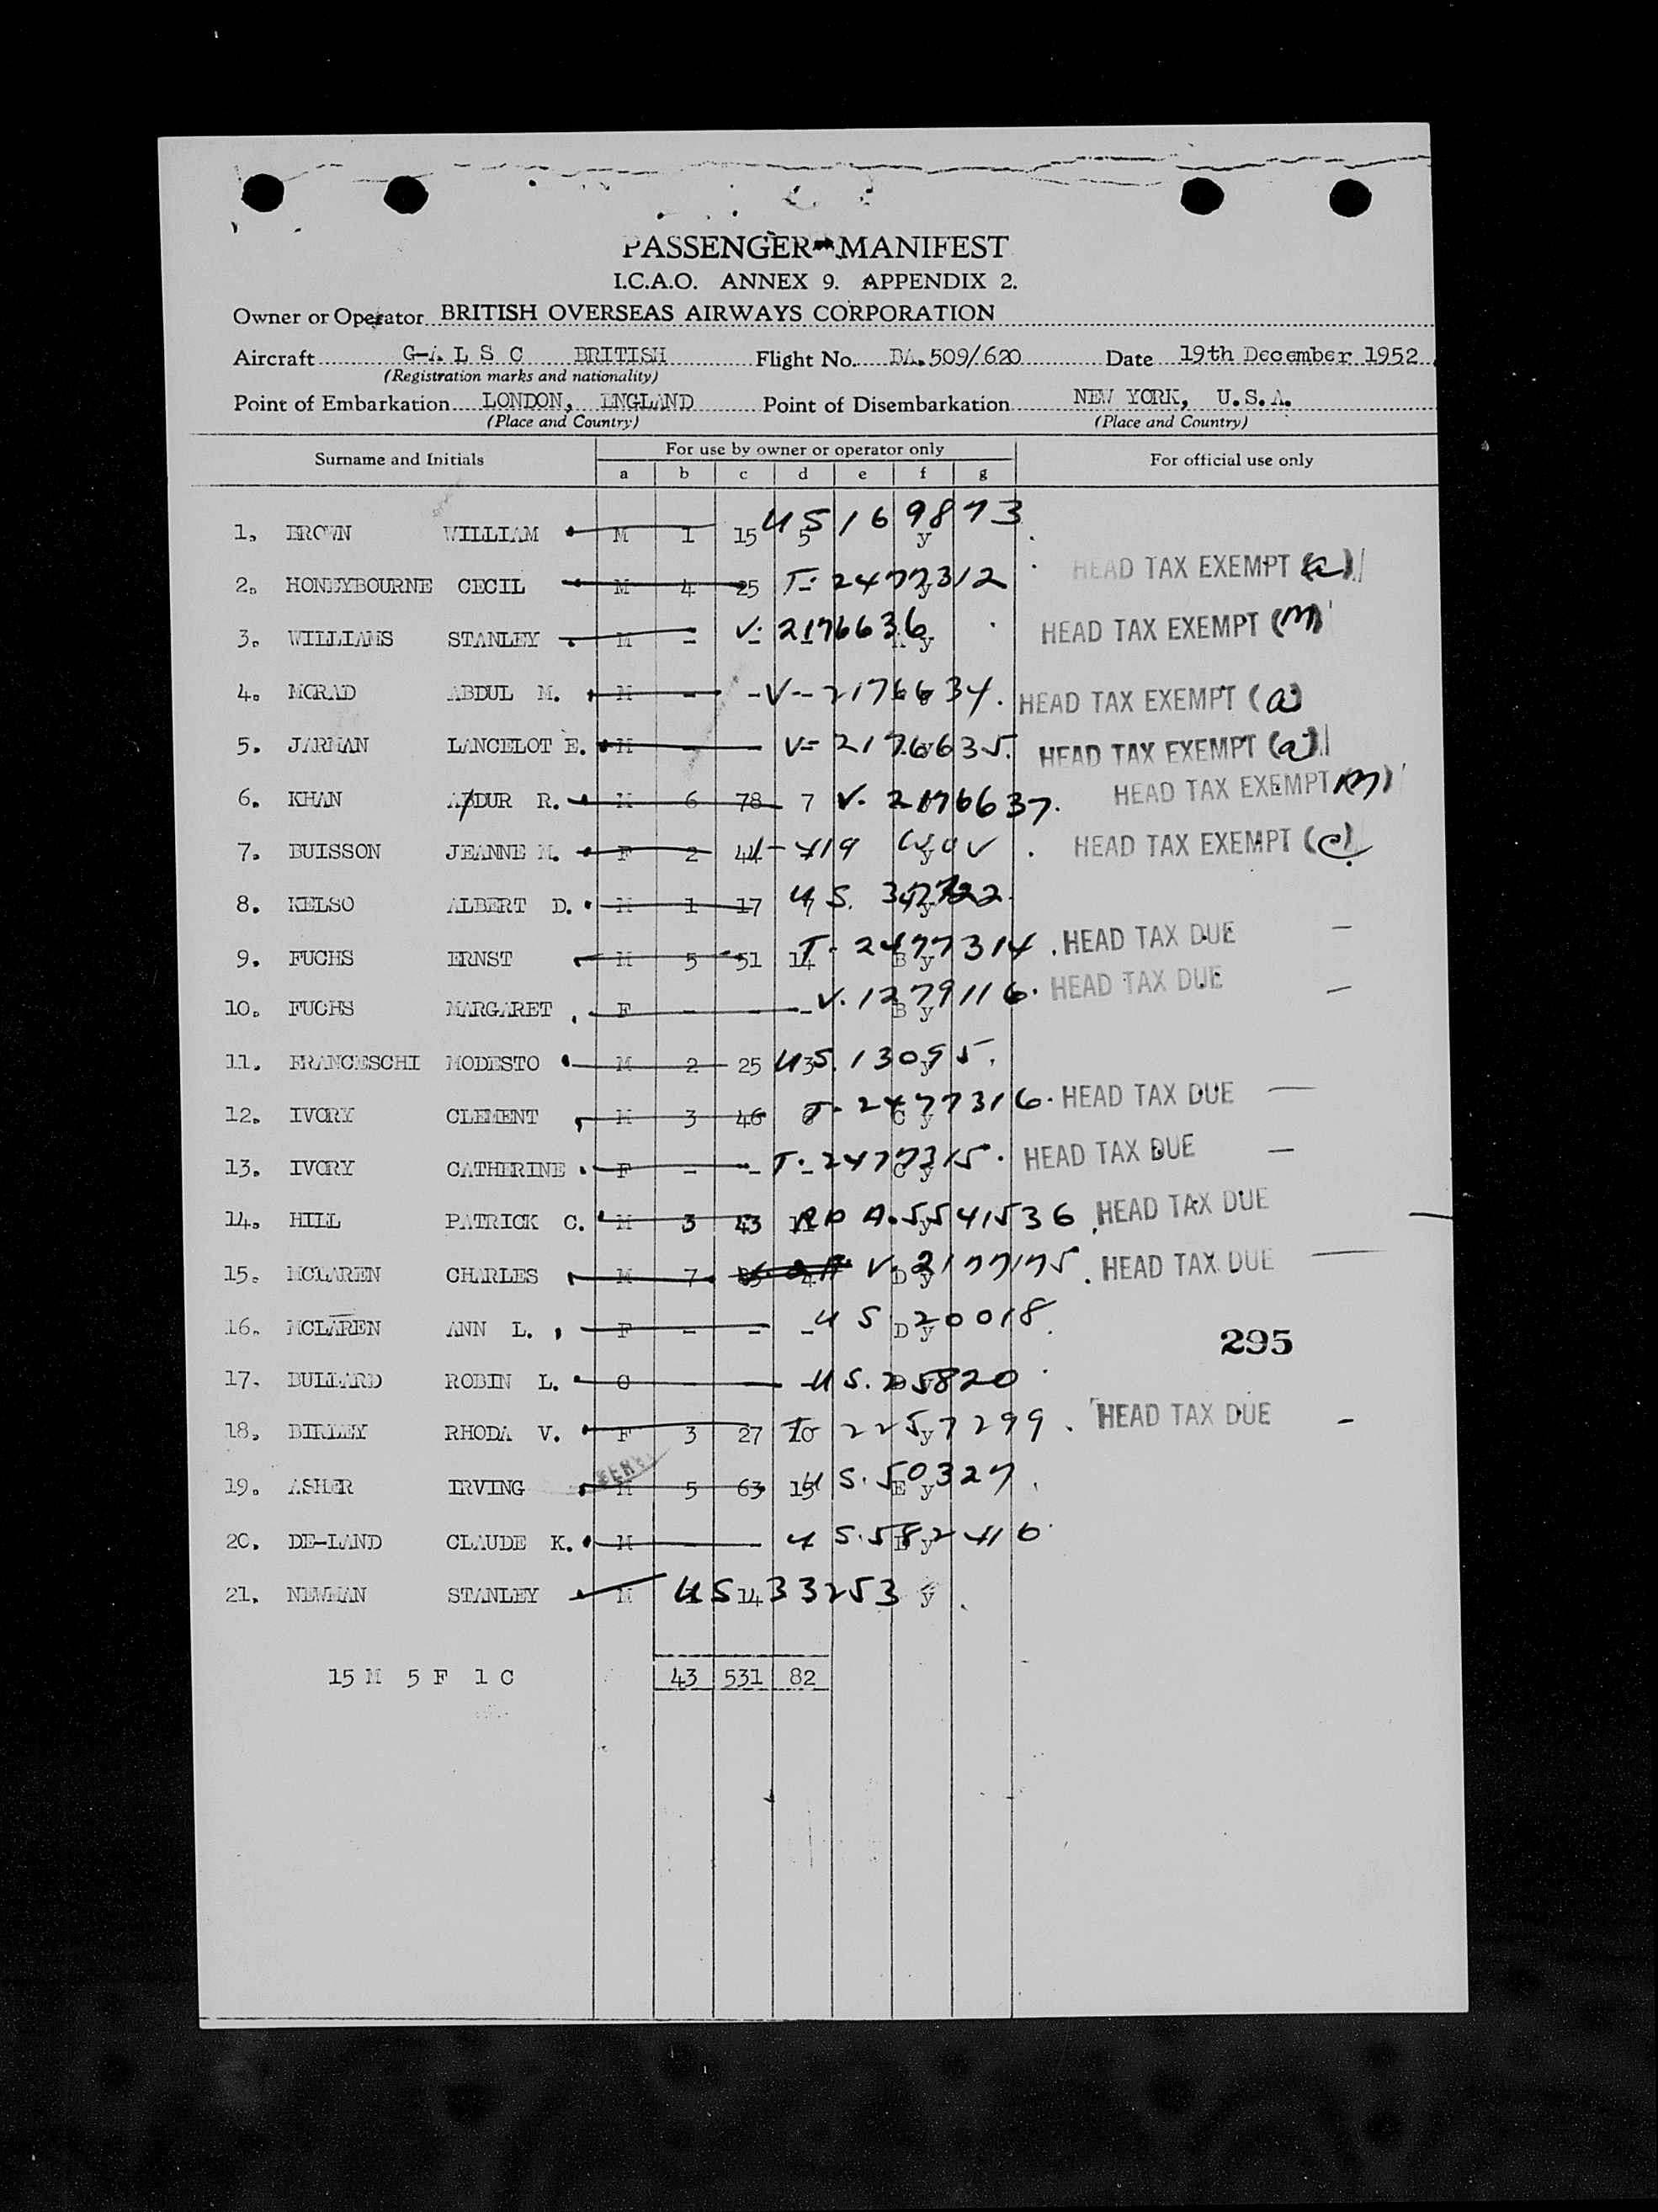 PASSENGER MANIFEST
I.C.A.O. ANNEX 9. APPENDIX 2.
Owner or Operator BRITISH OVERSEAS AIRWAYS CORPORATION
Aircraft G-A L S C BRITISH Flight No. BA.509/620 Date 19th December 1952
(Registration marks and nationality)
Point of Embarkation LONDON, ENGLAND Point of Disembarkation NEW YORK, U.S.A.
(Place and Country) (Place and Country)
Surname and Initials For use by owner or operator only For official use only
a b c d e f g
1. BROWN WILLIAM M 1 15 5 US 169873 y
2. HONEYBOURNE CECIL M 4 25 - T- 2477312 y HEAD TAX EXEMPT (a)
3. WILLIAMS STANLEY M - - - V. 2176636 A y HEAD TAX EXEMPT (M)
4. MORAD ABDUL M. M - - - V- 2176634. HEAD TAX EXEMPT (a)
5. JARMAN LANCELOT E. M - V- 2176635. HEAD TAX EXEMPT (a)
6. KHAN ABDUR R. M 6 78 7 V. 2176637. HEAD TAX EXEMPT (M)
7. BUISSON JEANNE M. F 2 44 y HEAD TAX EXEMPT (c)
8. KELSO ALBERT D. M 1 17 7 US. y
9. FUCHS ERNST M 5 51 14 T- 2477314 B y HEAD TAX DUE —
10. FUCHS MARGARET F - - - V. 1279116. B y HEAD TAX DUE —
11. FRANCESCHI MODESTO M 2 25 3 US. 13095. y
12. IVORY CLEMENT M 3 46 T- 2477316. C y HEAD TAX DUE —
13. IVORY CATHERINE F - - - T- 2477315. C y HEAD TAX DUE —
14. HILL PATRICK C. M 3 43 A.5541536 y HEAD TAX DUE —
15. MCLAREN CHARLES M 7 4 V. 2177175 D y HEAD TAX DUE —
16. MCLAREN ANN L. F - - - US 20018. D y
17. BULLARD ROBIN L. C - US. 25820
18. BIRLEY RHODA V. F 3 27 10 2257299. y HEAD TAX DUE —
19. ASHER IRVING M 5 63 15 US. 50327. E y
20. DE-LAND CLAUDE K. M US. 582416 E y
21. NEWMAN STANLEY M 14 US 33253 y
295
15 M 5 F 1 C 43 531 82